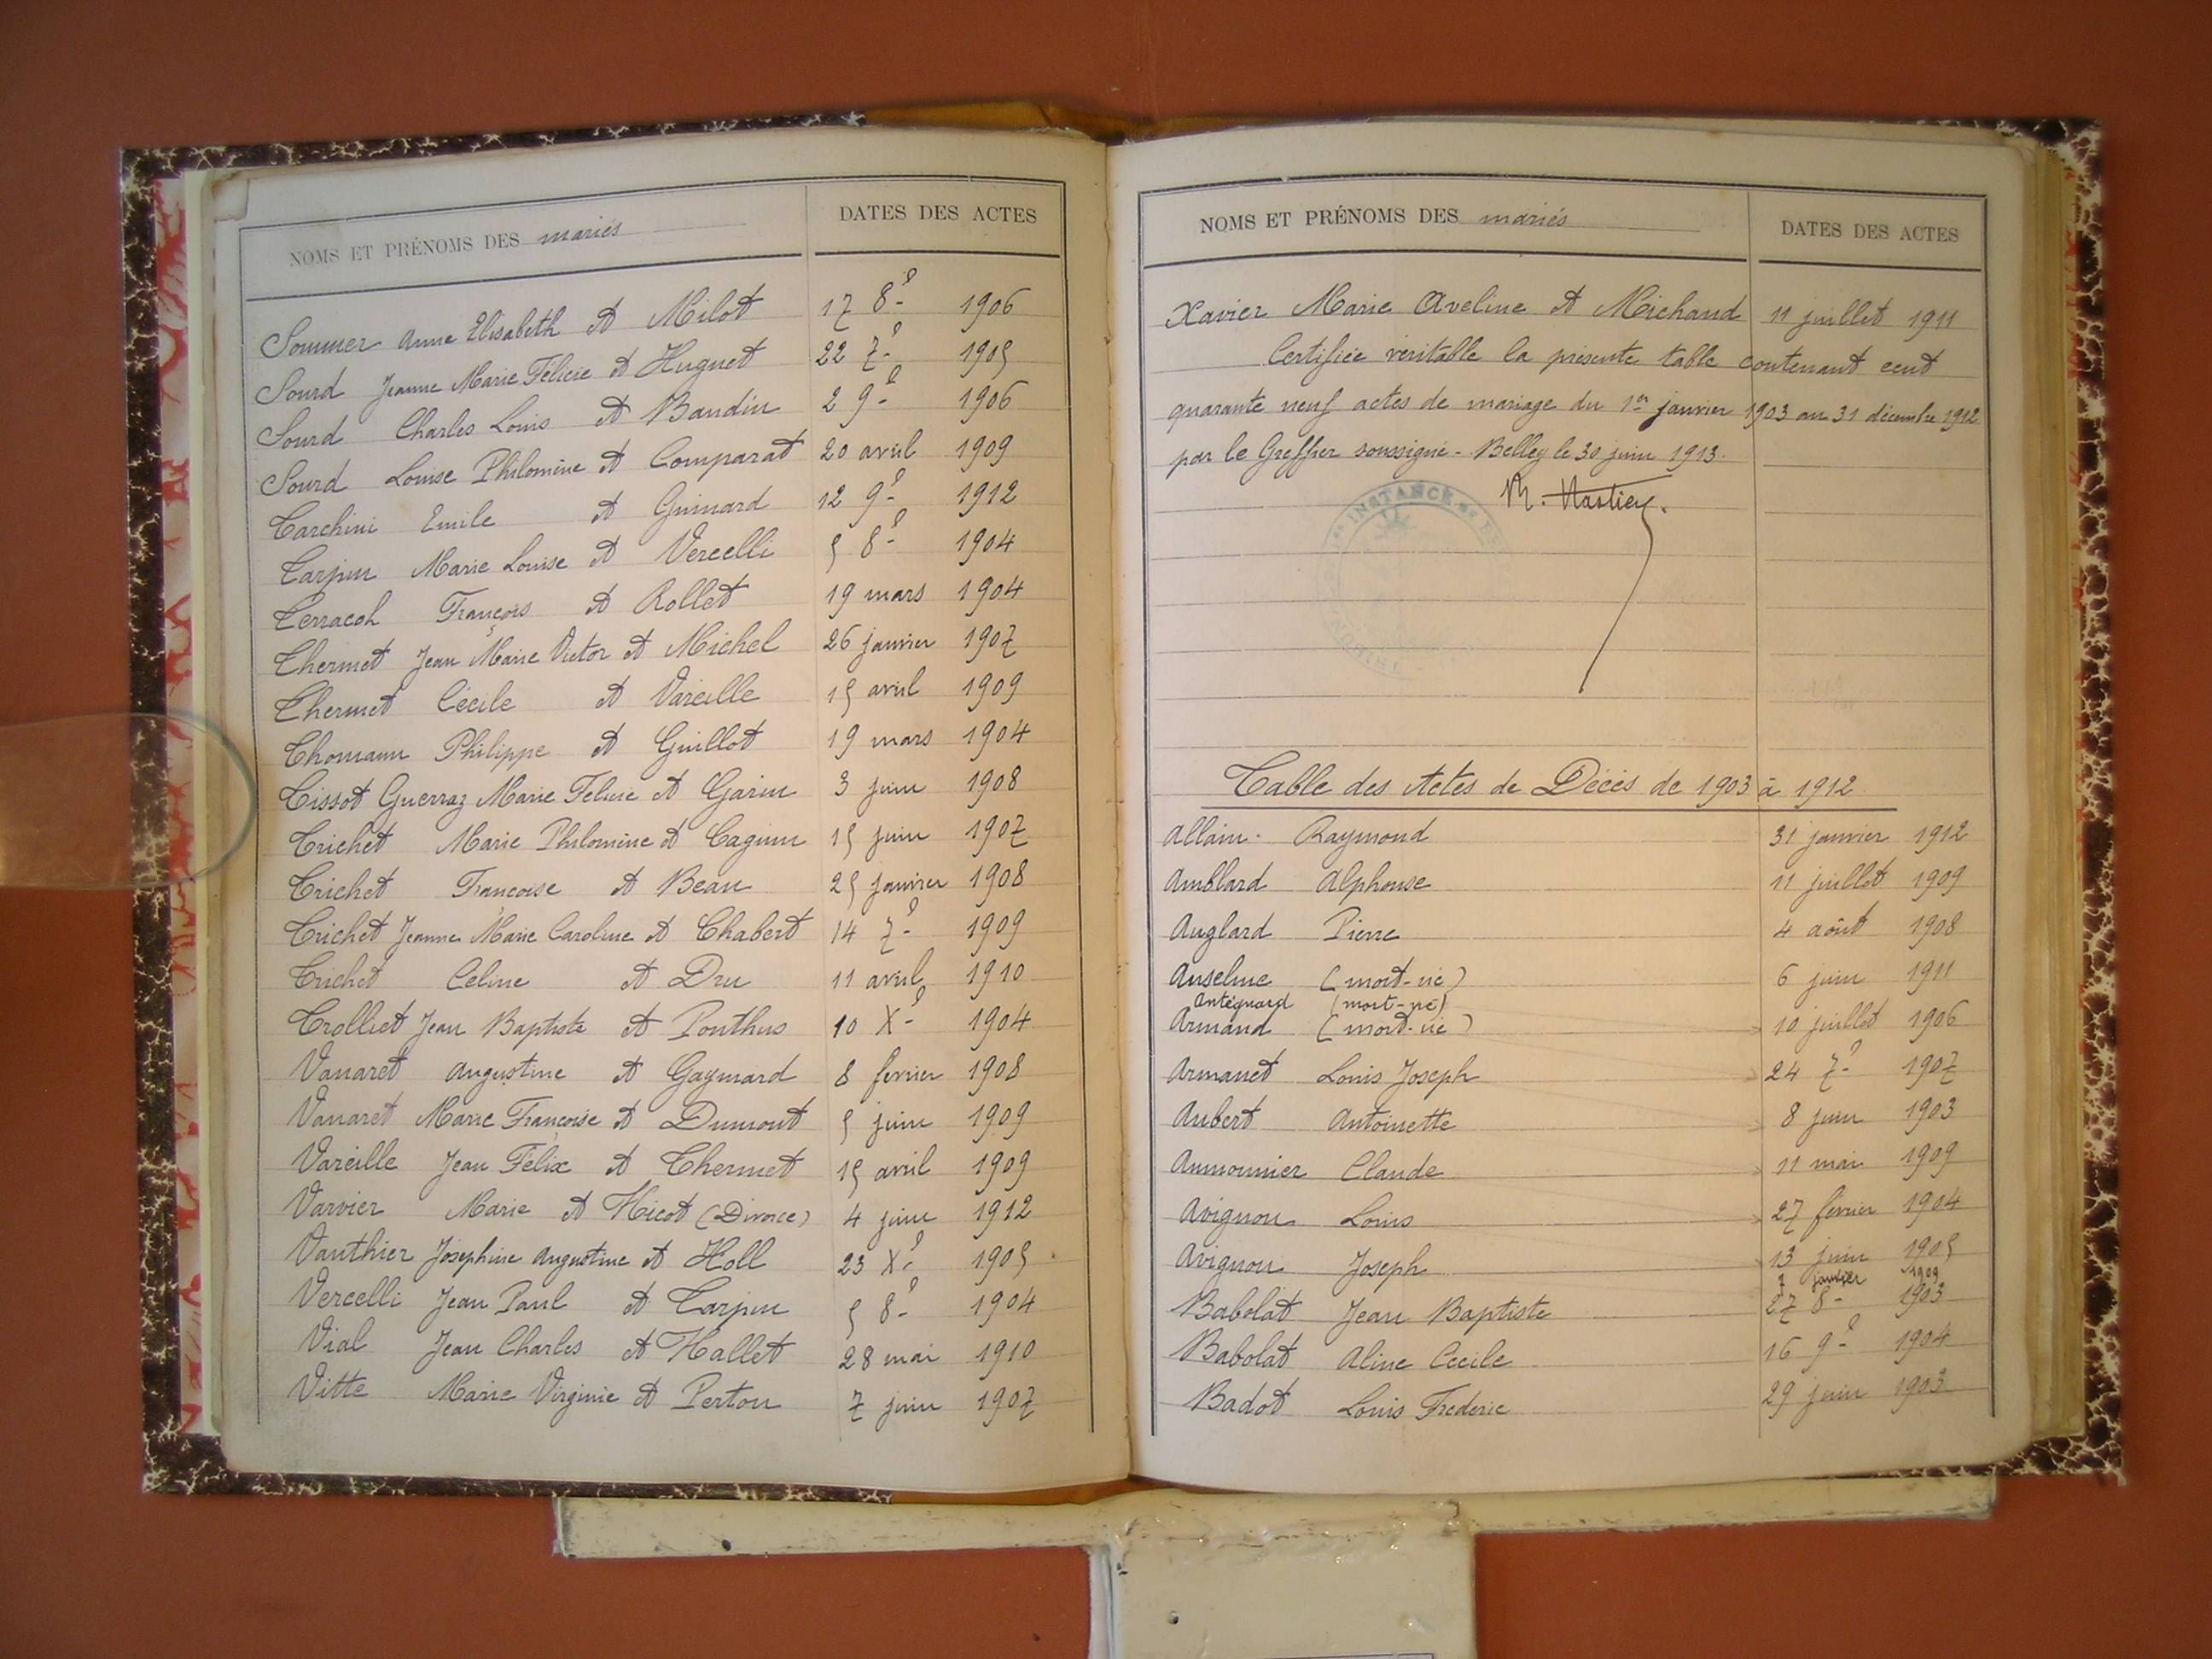 NOMS ET PRÉNOMS DES mariés DATES DES ACTES
Sommer Anne Elisabeth et Milot 17 8e 1906
Sourd Jeanne Marie Félicie et Huguet 22 7e 1905
Sourd Charles Louis et Baudin 2 9e 1906
Sourd Louise Philomine et Comparat 20 avril 1909
Tarchini Emile et Guinard 12 9e 1912
Tarpin Marie Louise et Vercelli 5 8e 1904
Terracol François et Rollet 19 mars 1904
Thermet Jean Marie Victor et Michel 26 janvier 1907
Thermet Cécile et Vareille 15 avril 1909
Thomann Philippe et Guillot 19 mars 1904
Tissot Guerraz Marie Felicie et Garin 3 juin 1908
Trichet Marie Philomine et Cagnin 15 juin 1907
Trichet Françoise et Beau 25 janvier 1908
Trichet Jeanne Marie Caroline et Chabert 14 7e 1909
Trichet Celine et Dru 11 avril 1910
Trolliet Jean Baptiste et Ponthus 10 Xe 1904
Vanaret Augustine et Gaymard 8 fevrier 1908
Vanaret Marie Françoise et Dumont 5 juin 1909
Vareille Jean Félix et Thermet 15 avril 1909
Varvier Marie et Hicot (Divorce) 4 juin 1912
Vauthier Joséphine Augustine et Holl 23 Xe 1905
Vercelli Jean Paul et Tarpin 5 8e 1904
Vial Jean Charles et Hallet 28 mai 1910
Vitte Marie Virginie et Perton 7 juin 1907
NOMS ET PRÉNOMS DES mariés DATES DES ACTES
Xavier Marie Aveline et Michaud 11 juillet 1911
Certifiée véritable la présente table contenant cent
quarante neuf actes de mariage du 1er janvier 1903 au 31 décembre 1912
par le Greffier soussigné - Belley le 30 juin 1913.
INSTANCE
Table des Actes de Décès de 1903 à 1912
Allain Raymond 31 janvier 1912
Amblard Alphonse 11 juillet 1909
Anglard Pierre 4 août 1908
Anselme (mort-né) 6 juin 1911
Antégnard (mort-né)
Armand (mort-né) 10 juillet 1906
Armanet Louis Joseph 24 7e 1907
Aubert Antoinette 8 juin 1903
Aumounier Claude 11 mai 1909
Avignon Louis 27 février 1904
Avignon Joseph 13 juin 1905
7 janvier 1909
Babolat Jean Baptiste 27 8e 1903
Babolat Aline Cécile 16 9e 1904
Badot Louis Frederic 29 juin 1903